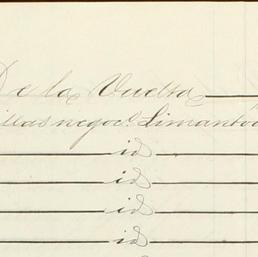 De la Vuelta
illas negoc.s Limantou
id
id
id
id